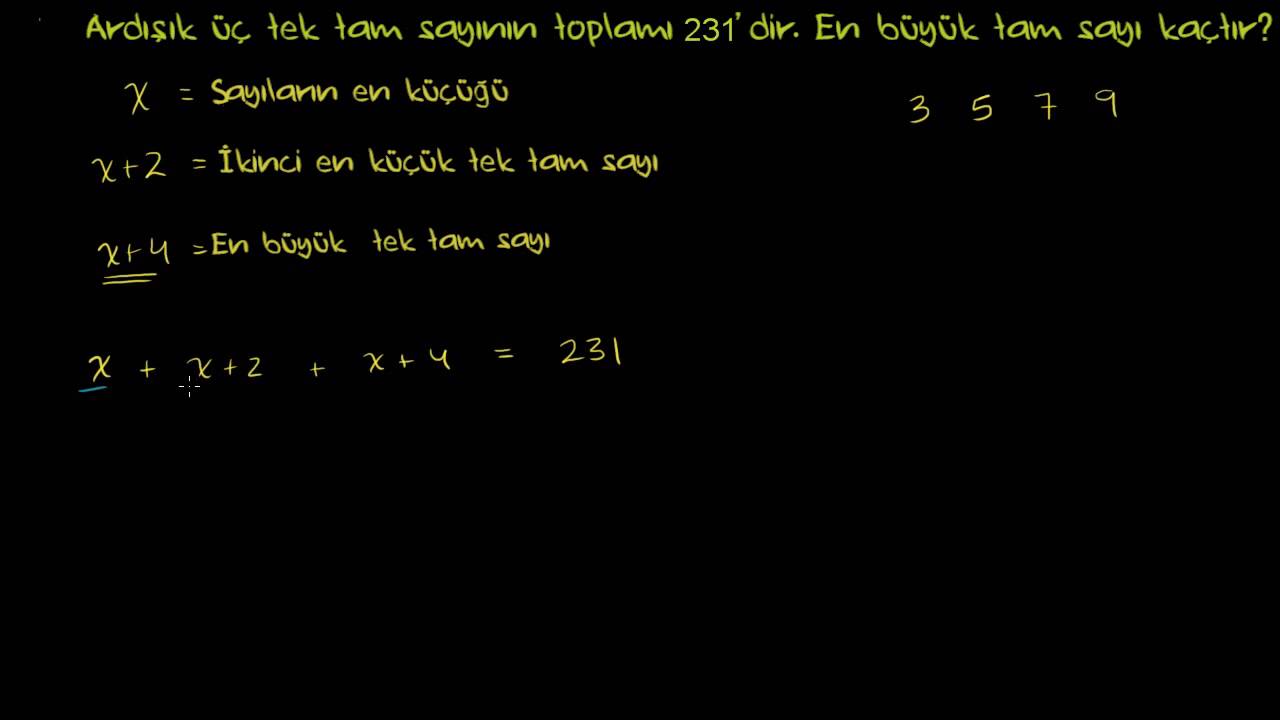 Ardışık üç tek tam sayının toplamı 231'dir. En büyük tam sayı kaçtır?
x = Sayıların en küçüğü
3 5 7 9
x+2 = İkinci en küçük tek tam sayı
x+4 = En büyük tek tam sayı
x + x+2 + x+4 = 231